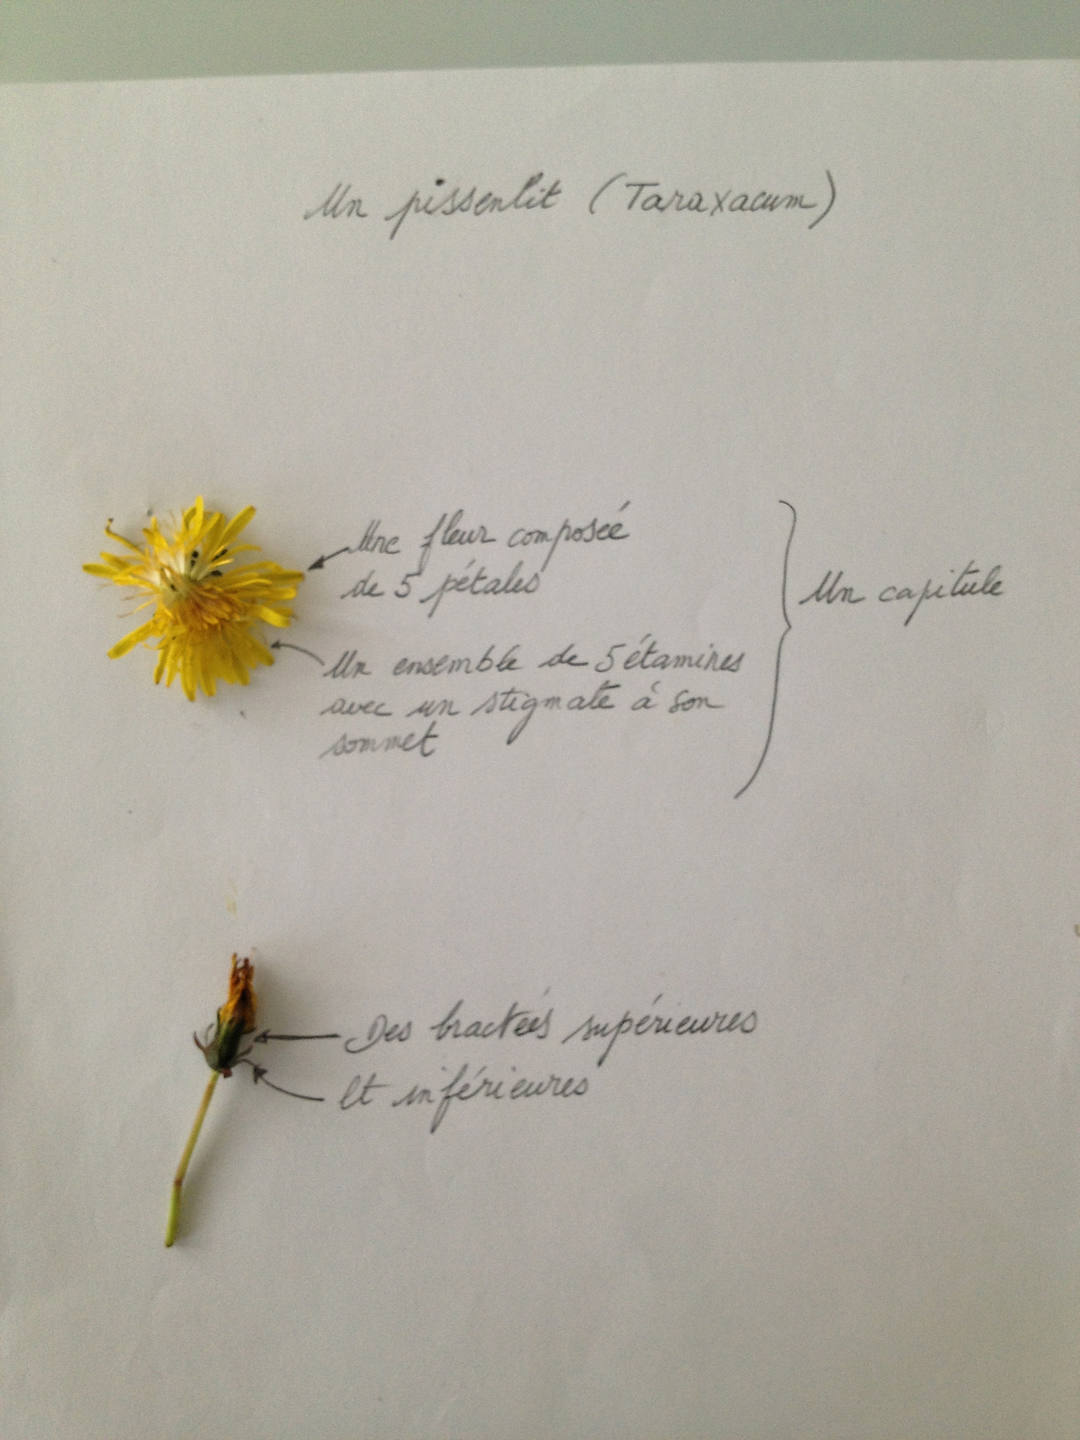 Un pissenlit (Taraxacum)
Une fleur composée
de 5 pétales
Un capitule
Un ensemble de 5 étamines
avec un stigmate à son
sommet
Des bractées supérieures
Et inférieures